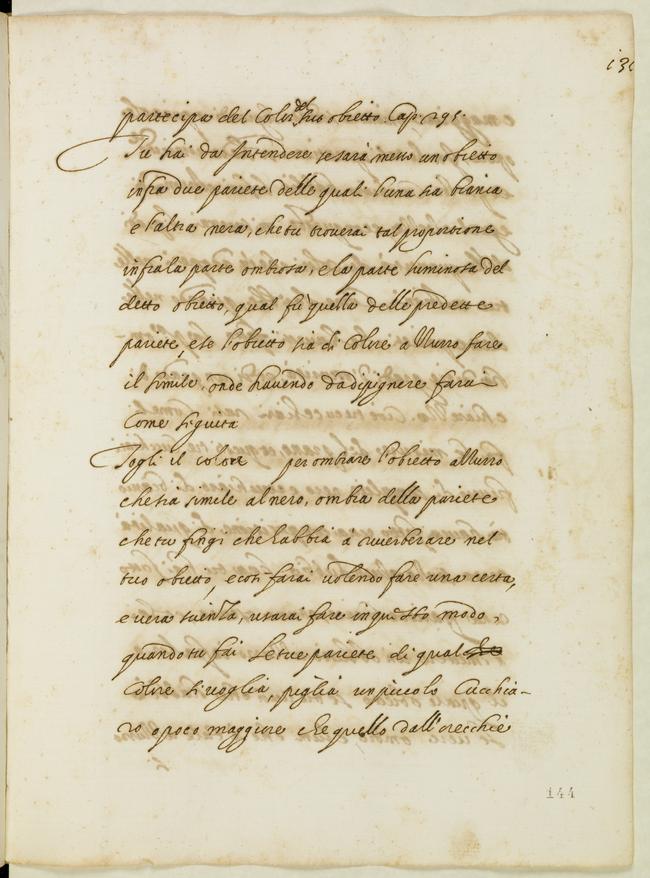 131
partecipa del Color del suo obietto. Cap. 195.
Tu hai da Intendere se sarà messo un obietto
infra due pariete delle quali l'una sia bianca
e l'altra nera, che tu troverai tal proportione
infra la parte ombrosa, e la parte luminosa del
detto obietto, qual fù quella delle predette
pariete, e se l'obietto sia di Colore aZurro fare
il simile, onde havendo da dipignere farai
Come seguita
Togli il colore per ombrare l'obietto aZurro
che sia simile al nero, ombra della pariete
che tu fingi che habbia à riverberare nel
tuo obietto, e così farai volendo fare una certa,
e vera scienza, usarai fare in questo modo,
quando tu fai le tue pariete di qual
Colore si voglia, piglia un piccolo Cucchia-
ro o poco maggiore che quello dall'orecchie
144